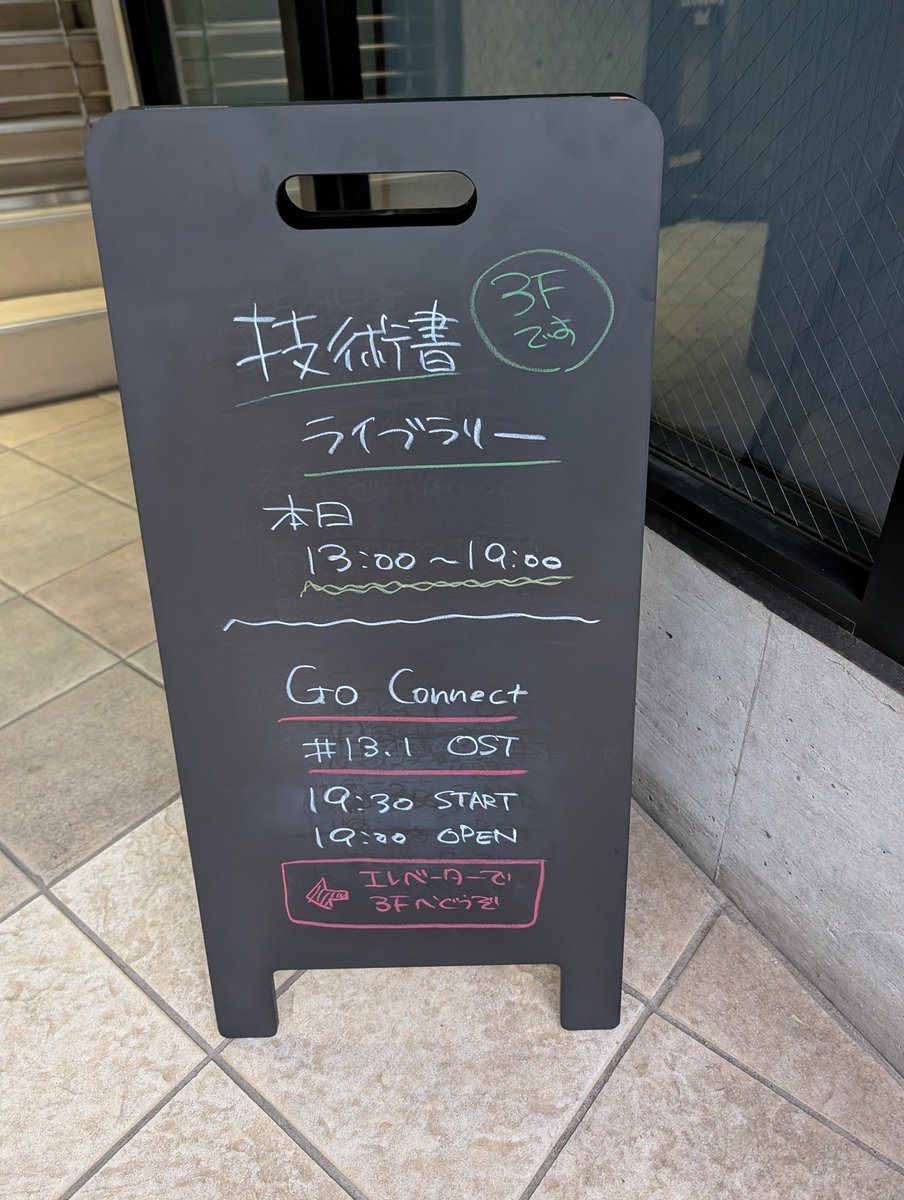 3F
です
技術書
ライブラリー
本日
13:00~19:00
Go Connect
#13.1 OST
19:30 START
19:00 OPEN
エレベーターで
3Fへどうぞ